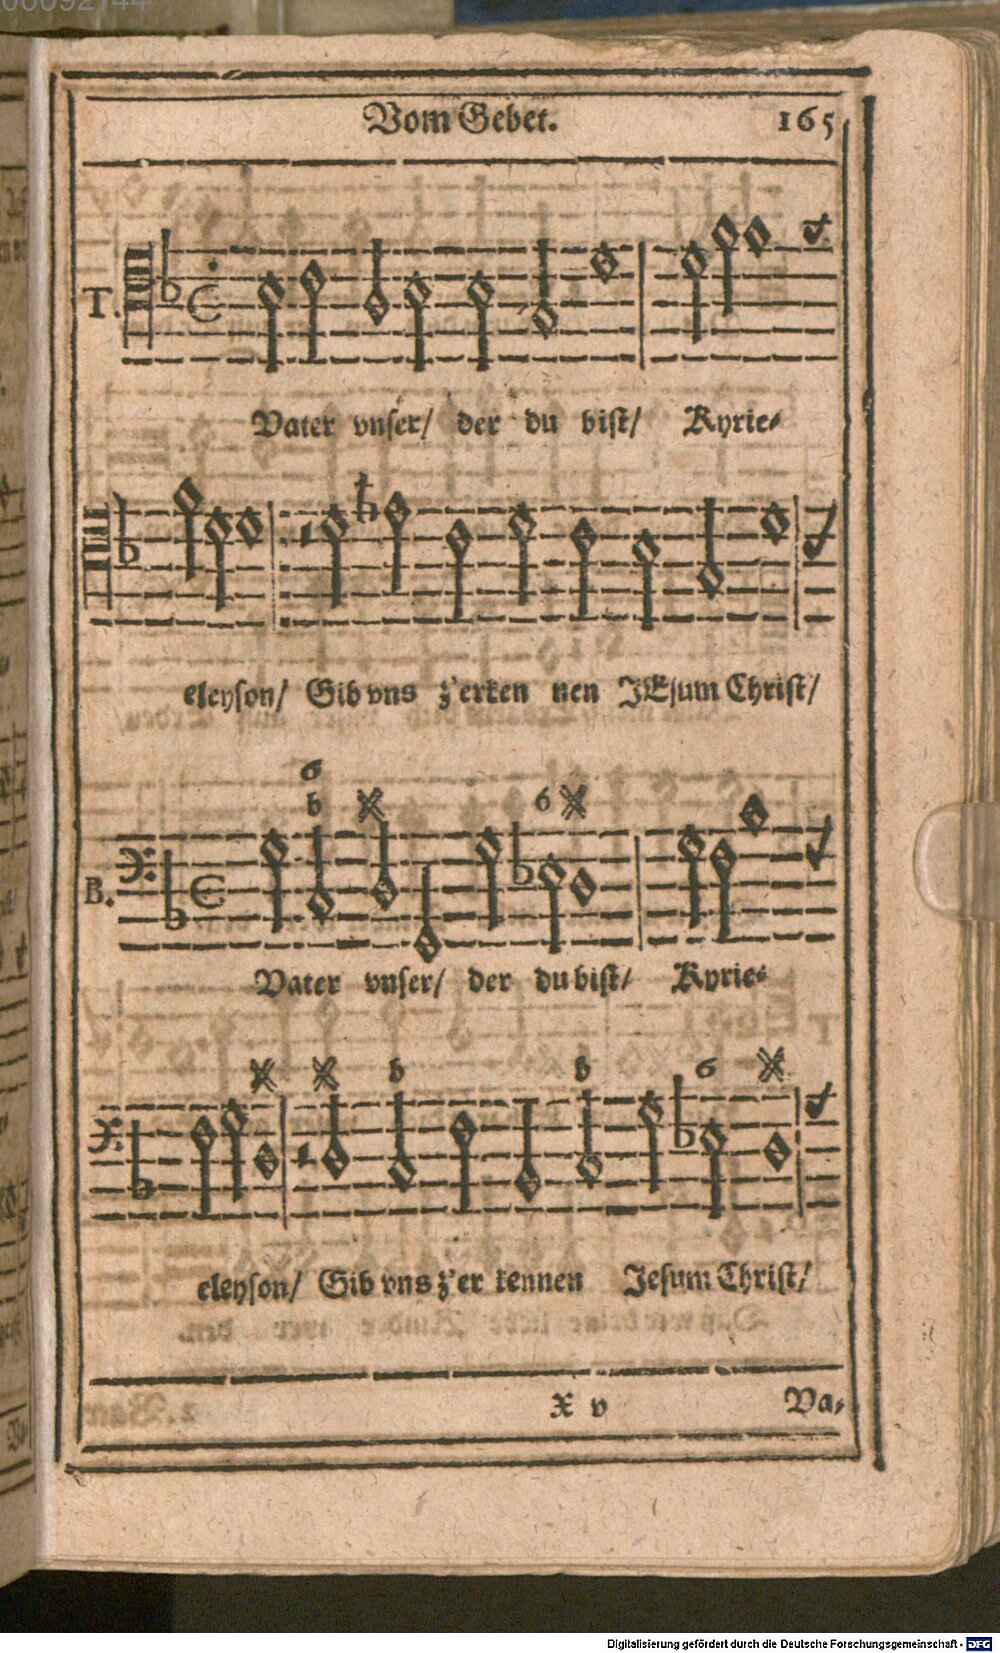 Vom Gebet. 165
T.
Vater vnser/ der du bist/ Kyrie⸗
eleyson/ Gib vns z'erken nen JEsum Christ/
6
b
6
B.
Vater vnser/ der du bist/ Kyrie⸗
b b 6
eleyson/ Gib vns z'er kennen Jesum Christ/
X v Va⸗
Digitalisierung gefördert durch die Deutsche Forschungsgemeinschaft - DFG